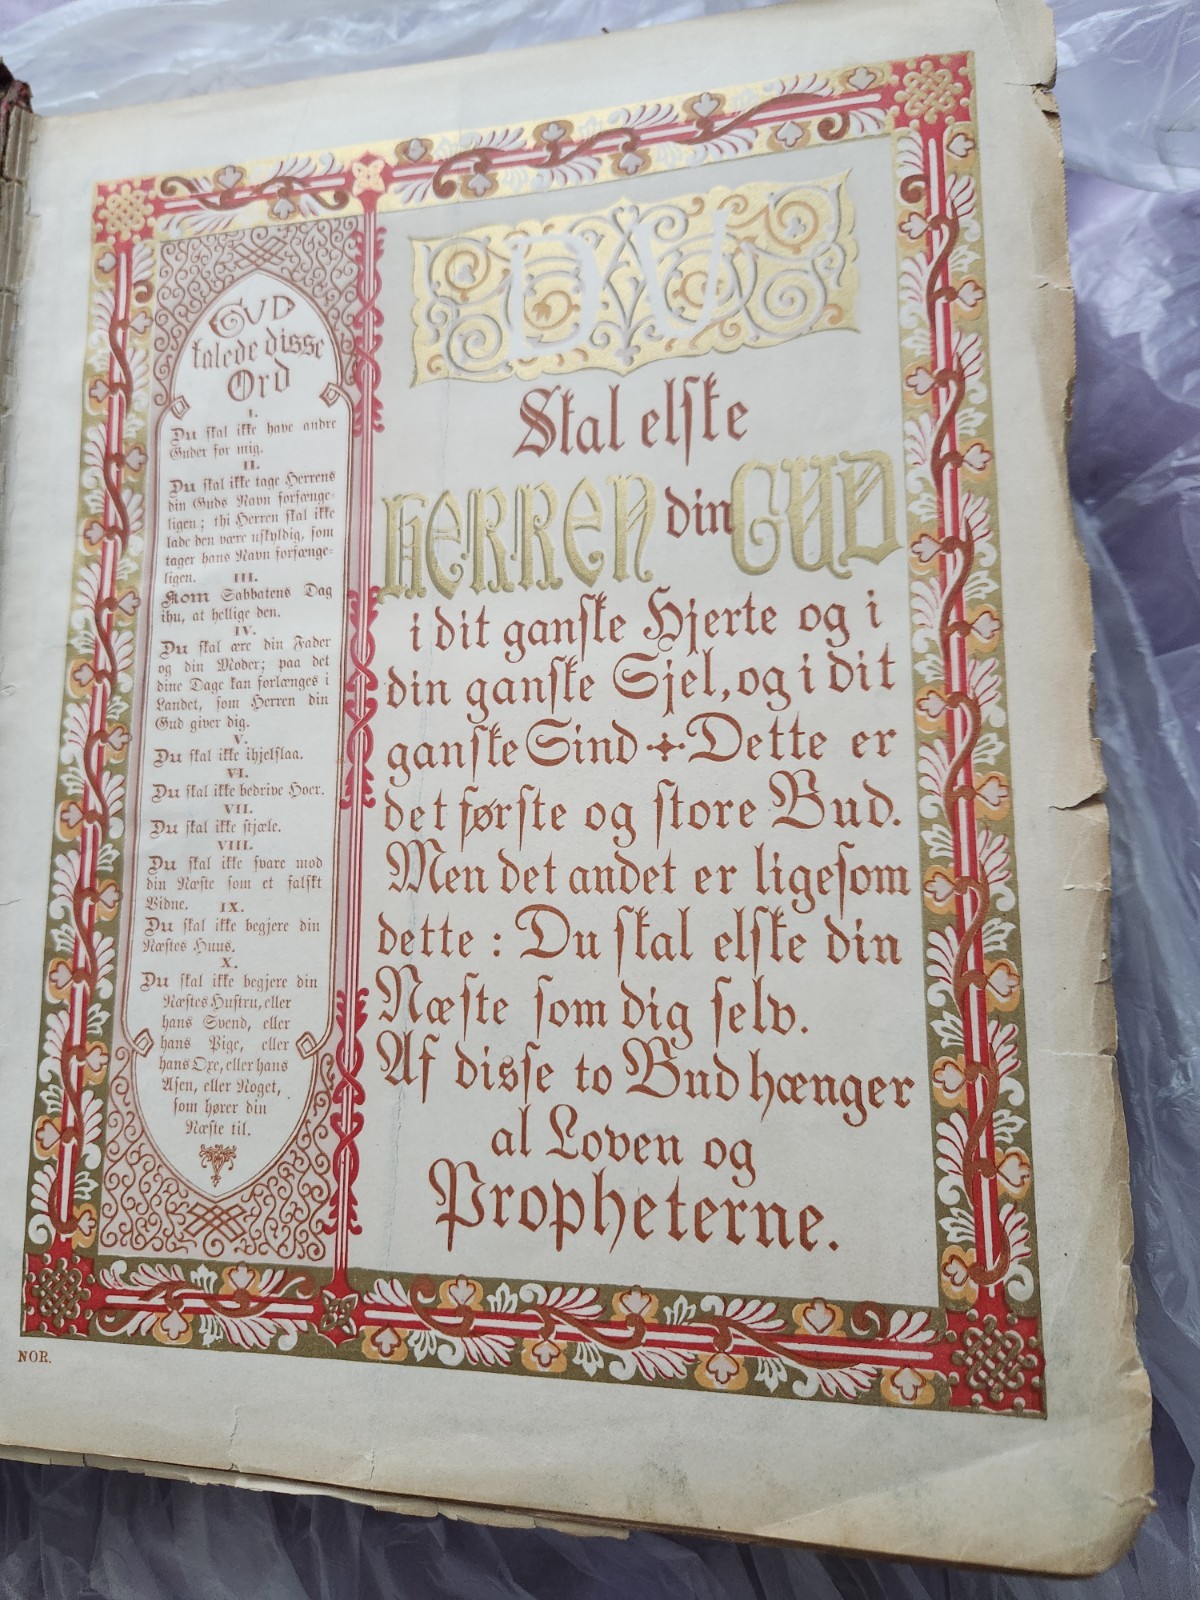 GUD
talede disse
Ord
I.
Du skal ikke have andre
Guder for mig.
II.
Du skal ikke tage Herrens
din Guds Navn forfænge-
ligen; thi Herren skal ikke
lade den være uskyldig, som
tager hans Navn forfænge-
ligen.
III.
Kom Sabbatens Dag
ihu, at hellige den.
IV.
Du skal ære din Fader
og din Moder; paa det
dine Dage kan forlænges i
Landet, som Herren din
Gud giver dig.
V.
Du skal ikke ihjelslaa.
VI.
Du skal ikke bedrive Hoer.
VII.
Du skal ikke stjæle.
VIII.
Du skal ikke svare mod
din Næste som et falskt
Vidne.
IX.
Du skal ikke begjere din
Næstes Huus.
X.
Du skal ikke begjere din
Næstes Hustru, eller
hans Svend, eller
hans Pige, eller
hans Oxe, eller hans
Asen, eller Noget,
som hører din
Næste til.
DU
Skal elske
HERREN din GUD
i dit ganske Hjerte og i
din ganske Sjel, og i dit
ganske Sind ✦ Dette er
det første og store Bud.
Men det andet er ligesom
dette : Du skal elske din
Næste som dig selv.
Af disse to Bud hænger
al Loven og
Propheterne.
NOR.